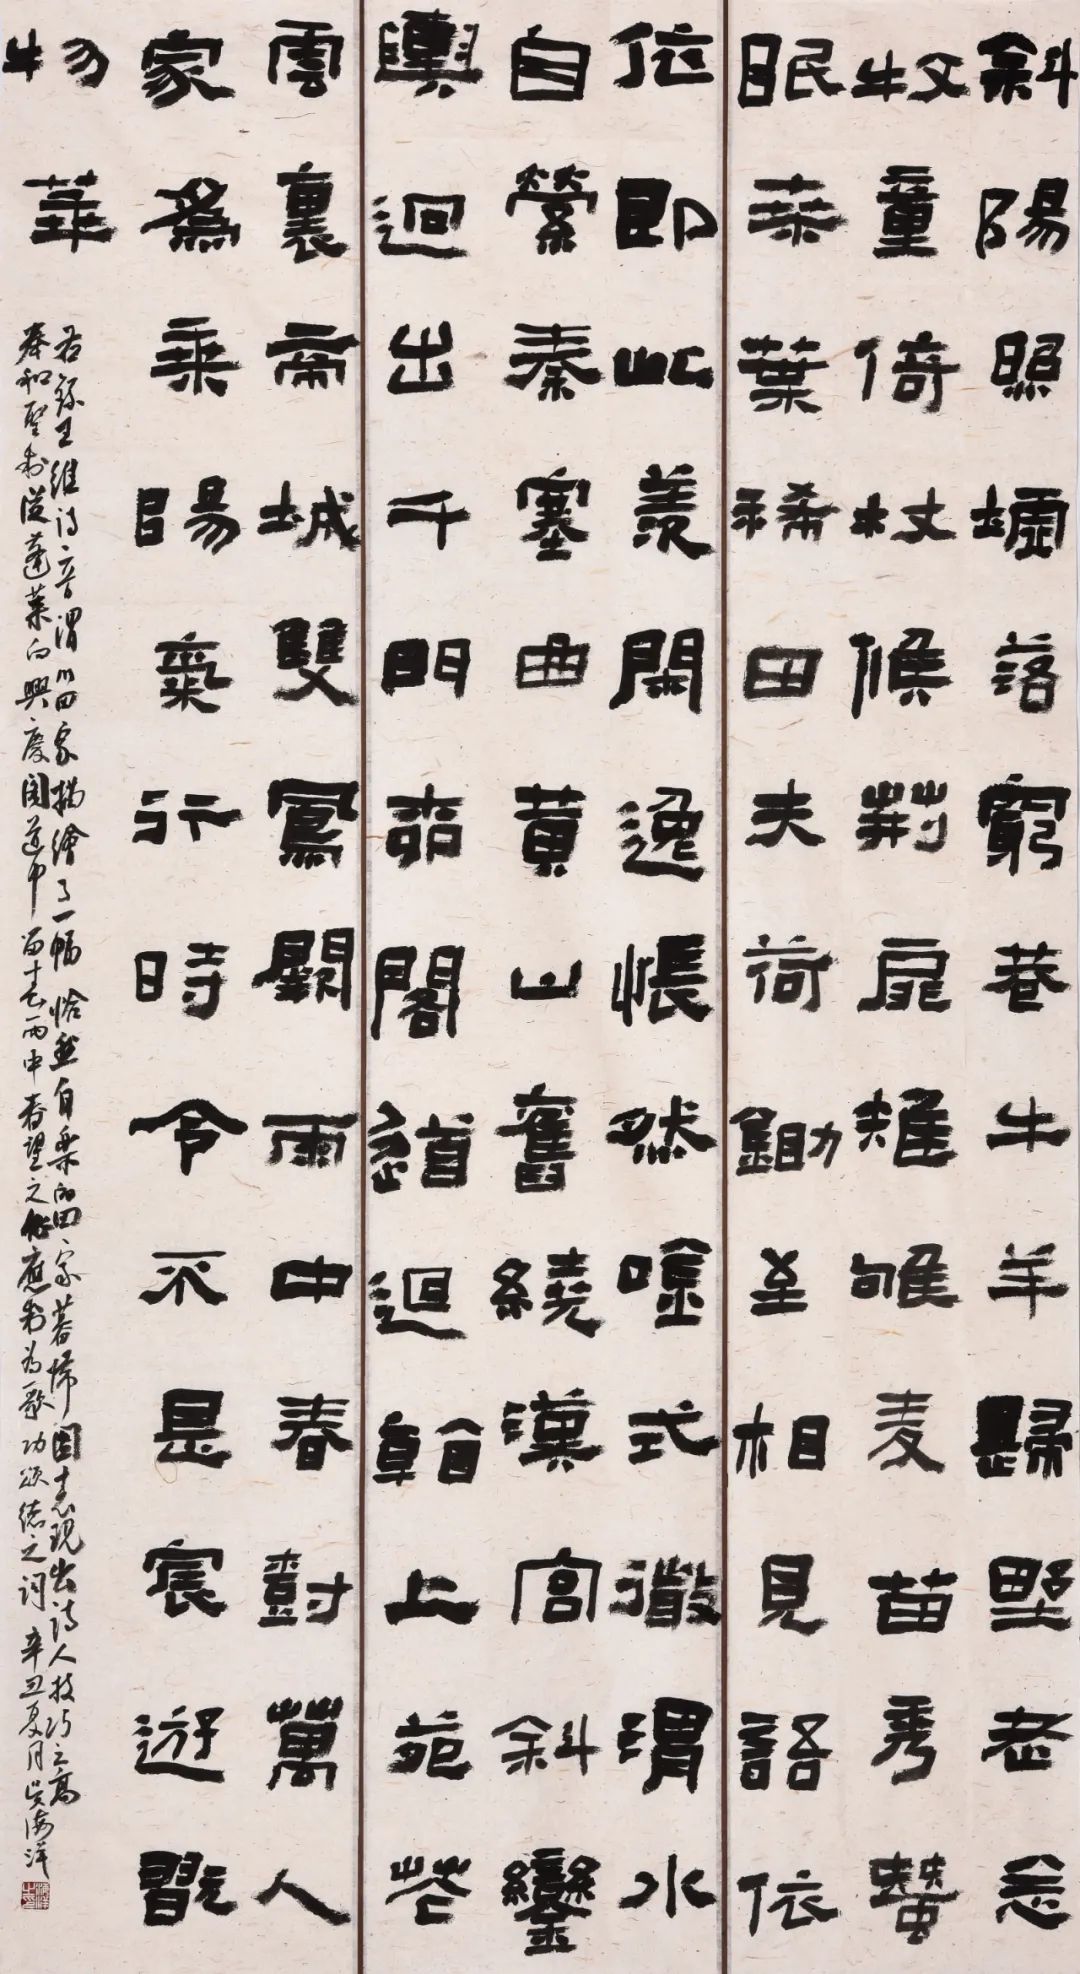 斜陽照墟落窮巷牛羊歸野老念
牧童倚杖候荊扉雉雊麦苗秀蠶
眠桑葉稀田夫荷鋤至相見語依
依即此羨閑逸悵然唫式微渭水
自縈秦塞曲黃山舊繞漢宮斜鑾
輿迥出千門柳閣道迴看上苑花
雲裏帝城雙鳳闕雨中春對萬人
家為乘陽氣行時令不是宸遊翫
物華
右錄王維詩二首渭川田家描繪了一幅怡然自樂的田家暮歸圖表現出詩人技巧之高
奉和聖制從蓬萊向興慶閣道中留春雨中春望之作應制為歌功頌德之詞辛丑夏月吳海洋